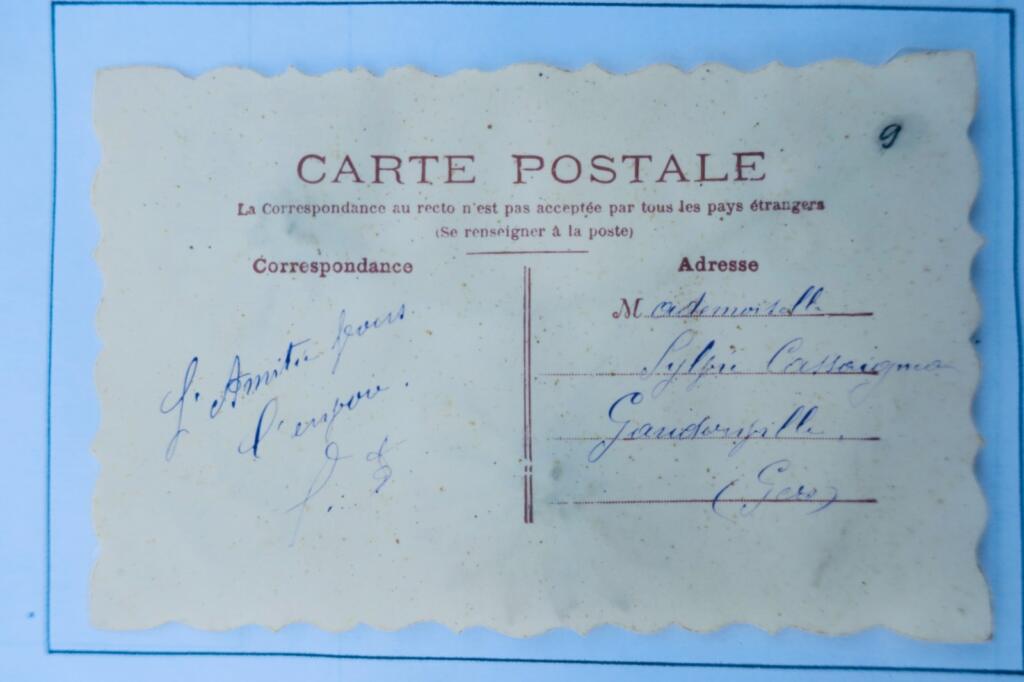 9
CARTE POSTALE
La Correspondance au recto n'est pas acceptée par tous les pays étrangers
(Se renseigner à la poste)
Correspondance
L'Amitié pour
l'envoi.
Adresse
Mademoiselle
Sylvie Cassaigne
Gaudonville.
(Gers)